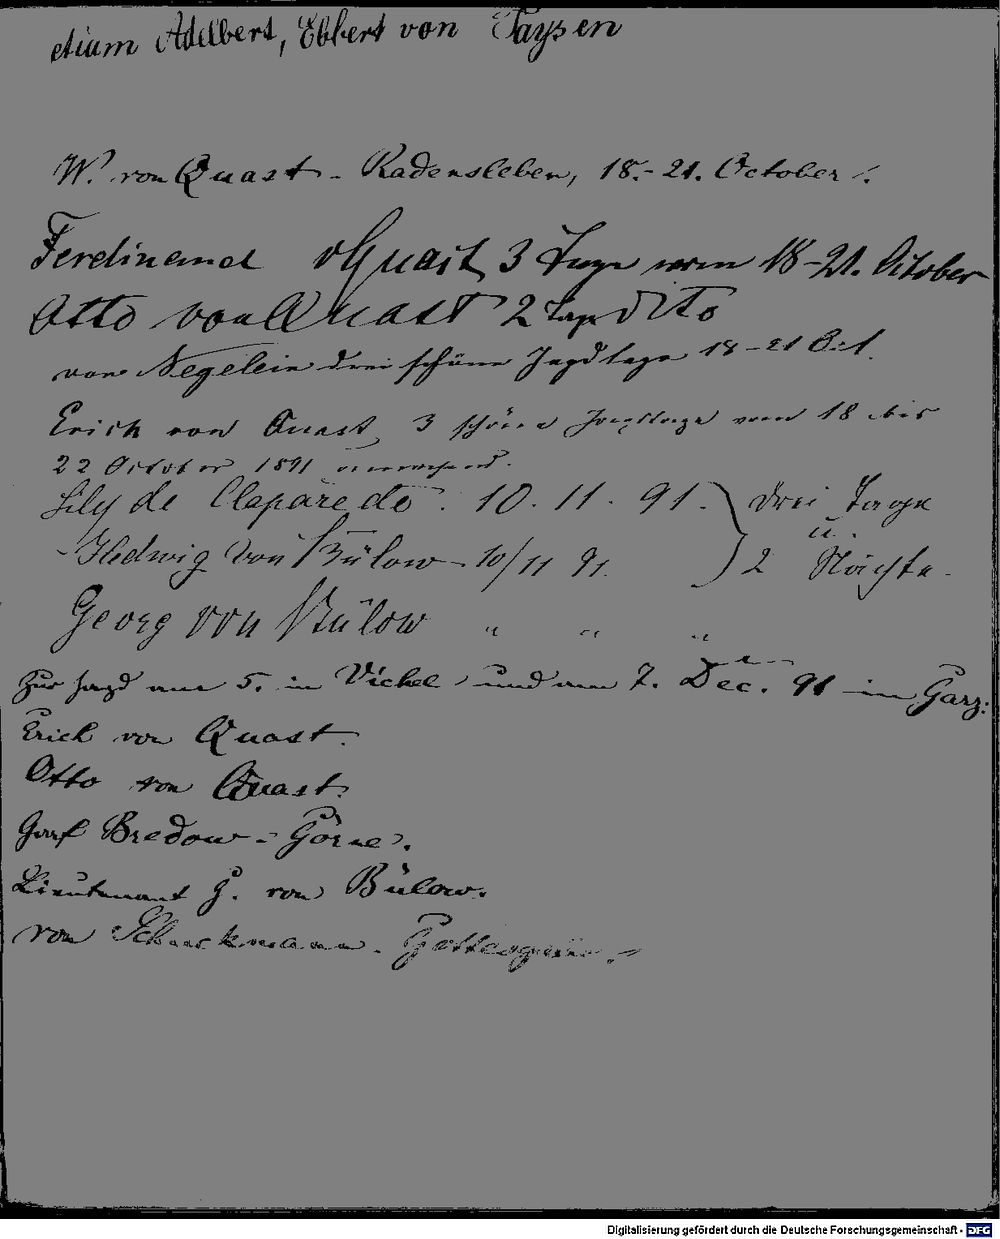 etiam Adelbert, Ebbert von Taysen
W. von Quast - Radensleben, 18.- 21. October.
Ferdinand v Quast, 3 Tage vom 18-21. October
Otto von Quast 2 Tage dito
von Negelein drei schöne Jagdtage 18-21 Oct.
Erich von Quast, 3 schöne Jagdtage vom 18 bis
22 October 1891 anwesend.
Lily de Claparède. 10. 11. 91. } drei Tage
u.
Hedwig von Bülow - 10/11 91. 2 Nächte.
Georg von Bülow " " "
Zur Jagd am 5. in Vichel und am 7. Dec. 91 in Garz:
Erich von Quast.
Otto von Quast.
Graf Bredow - Görne.
Lieutenant G. von Bülow.
von